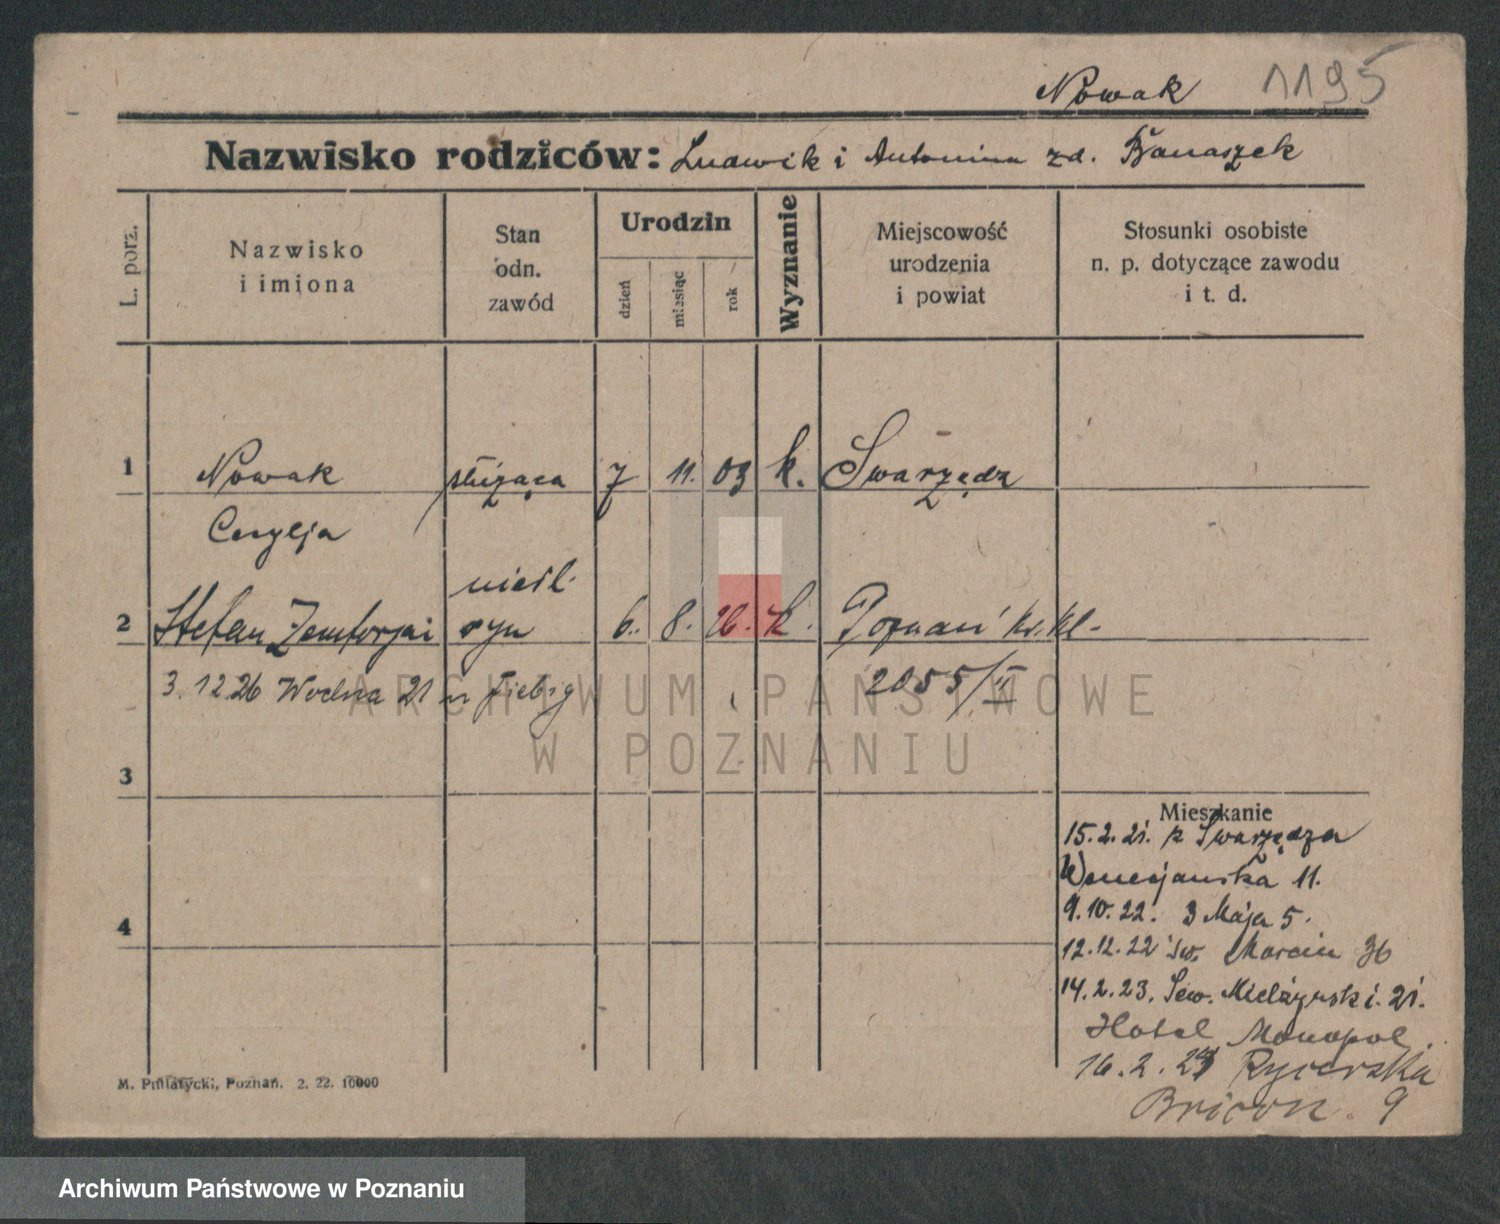 Nowak 1195
Nazwisko rodziców: Ludwik i Antonina zd. Banaszek
L. porz.
Nazwisko
i imiona
Stan
odn.
zawód
Urodzin
dzień
miesiąc
rok
Wyznanie
Miejscowość
urodzenia
i powiat
Stosunki osobiste
n. p. dotyczące zawodu
i t. d.
1 Nowak służąca 7 11. 03 k. Swarzędz
Cecylja
nieśl.
2 Stefan syn 6. 8. 26. k. Poznań
3.12.26 Wodna 21 u Fiebig 2055/II
ARCHIWUM PAŃSTWOWE
W POZNANIU
3
Mieszkanie
15.2.21. z Swarzędza
Wenecjańska 11.
9.10.22. 3 Maja 5.
4
12.12.22 św. Marcin 36
14.2.23. Sew. Mielżyński. 21.
Hotel Monopol
16.2.24 Rycerska
9
M. Putiatycki, Poznań. 2. 22. 10000
Archiwum Państwowe w Poznaniu